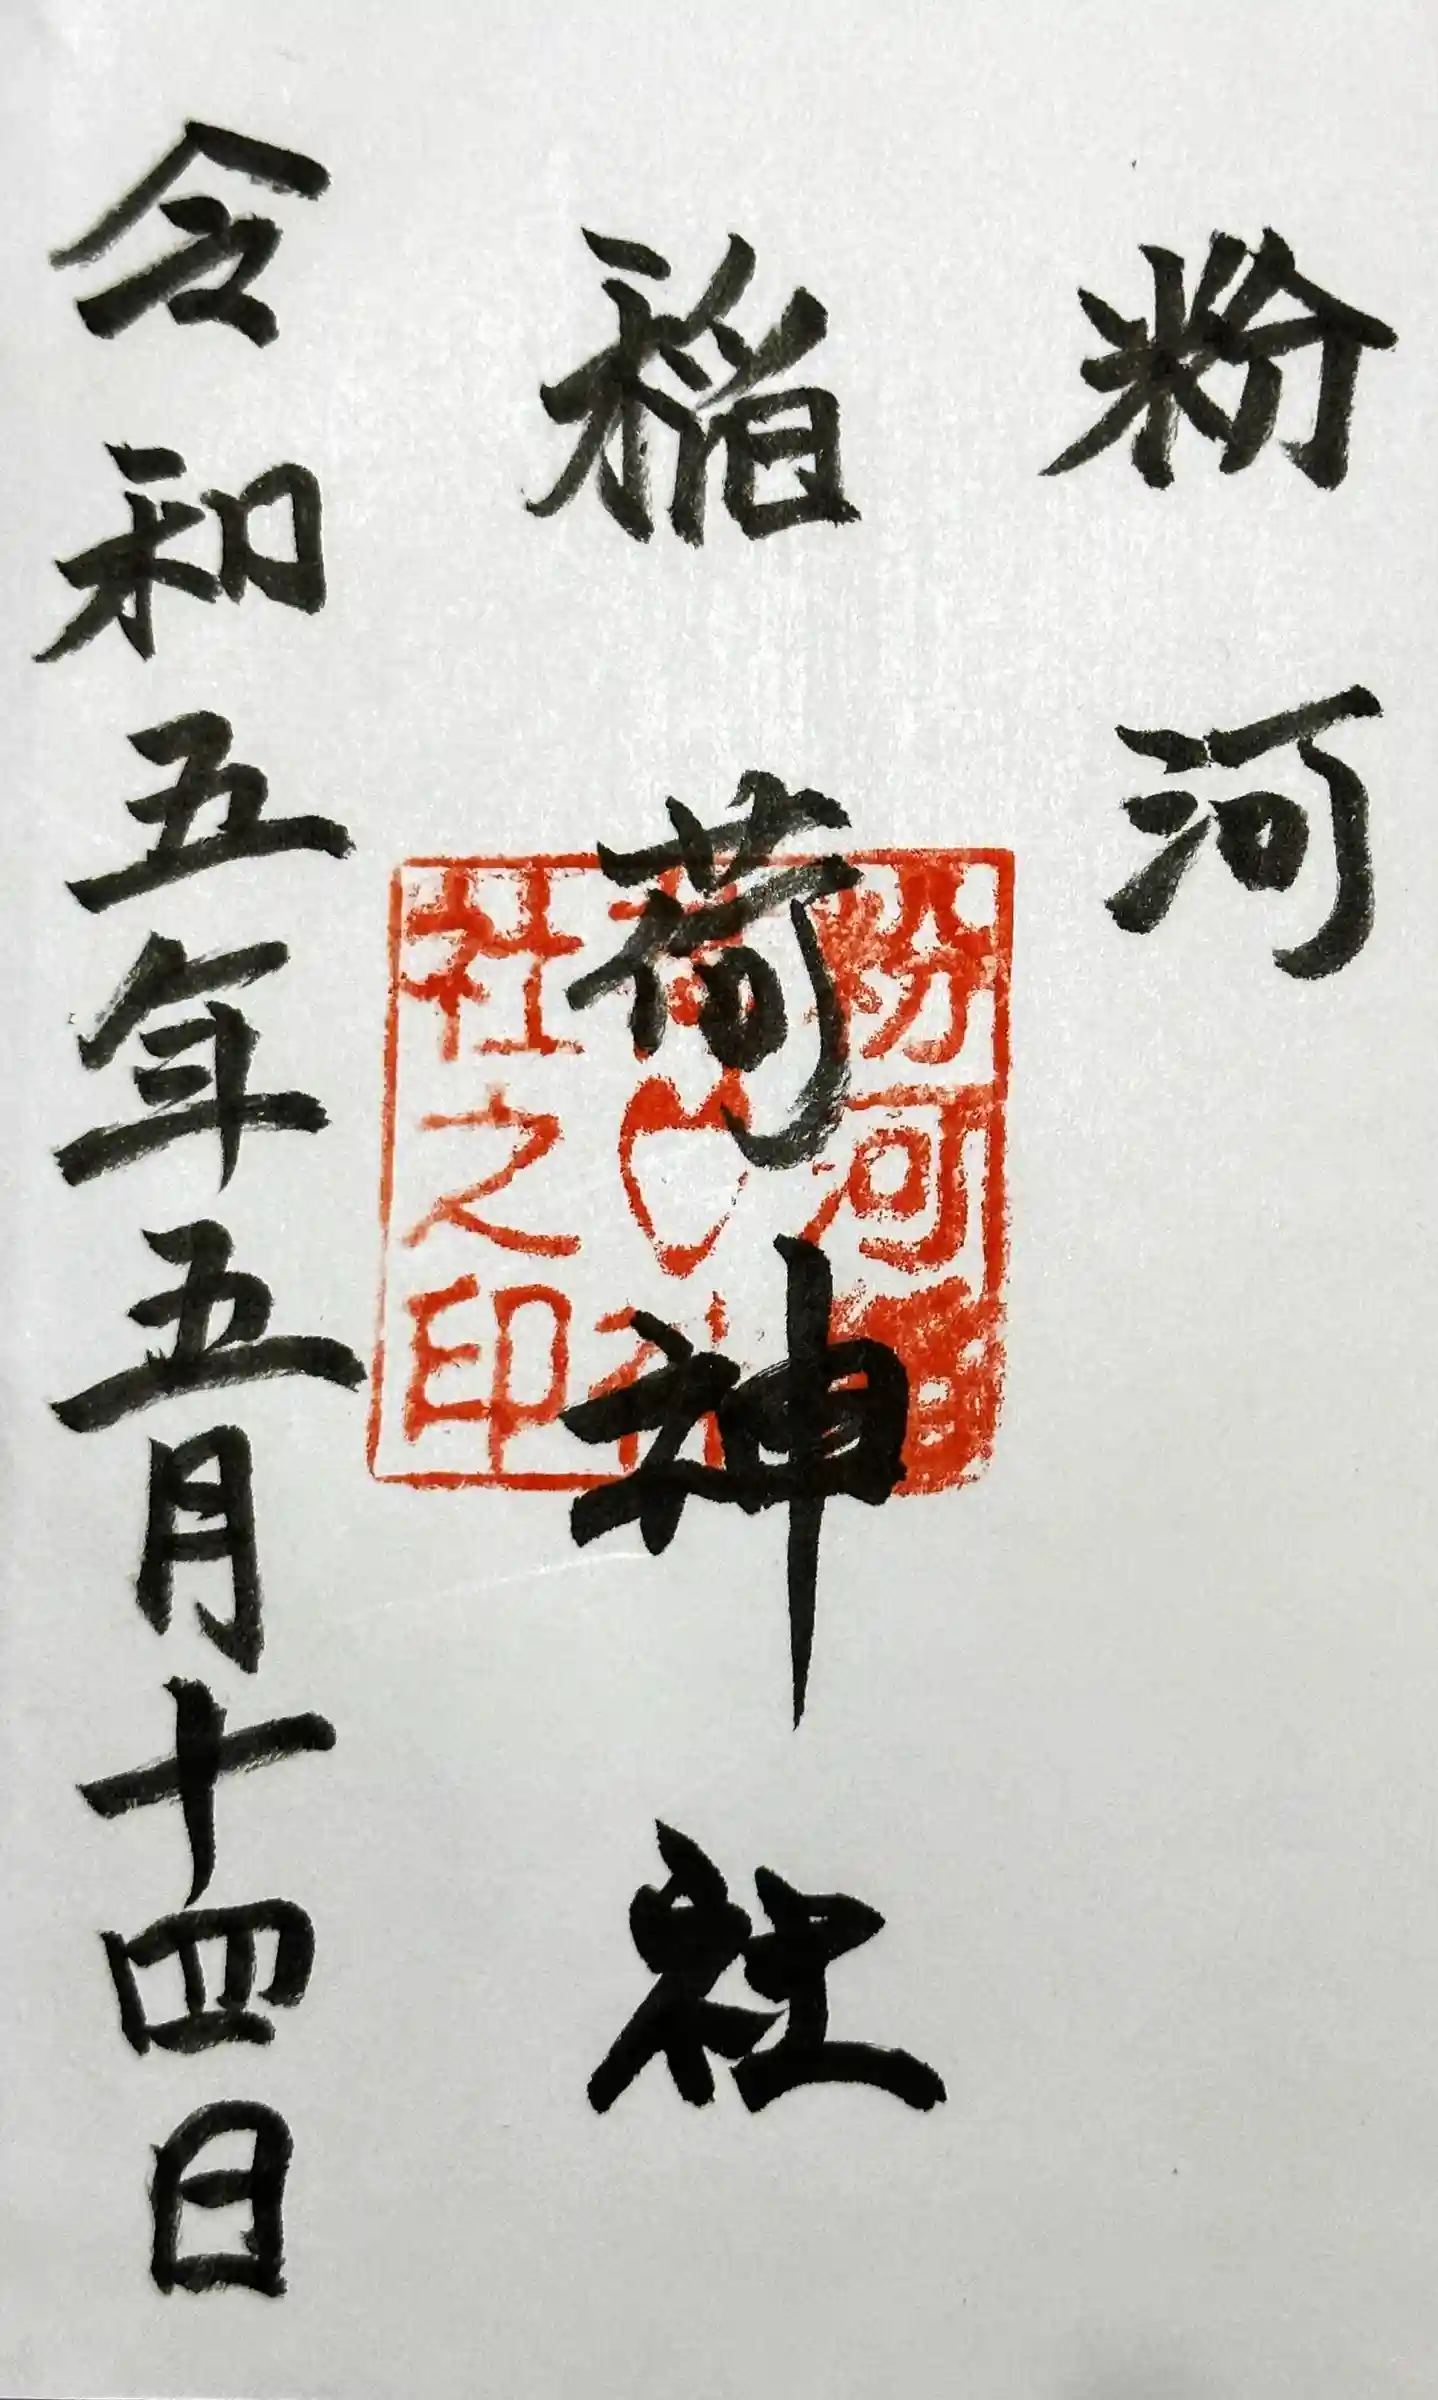 粉河
稲荷神社
令和五年五月十四日
粉河稲
荷神
社之印